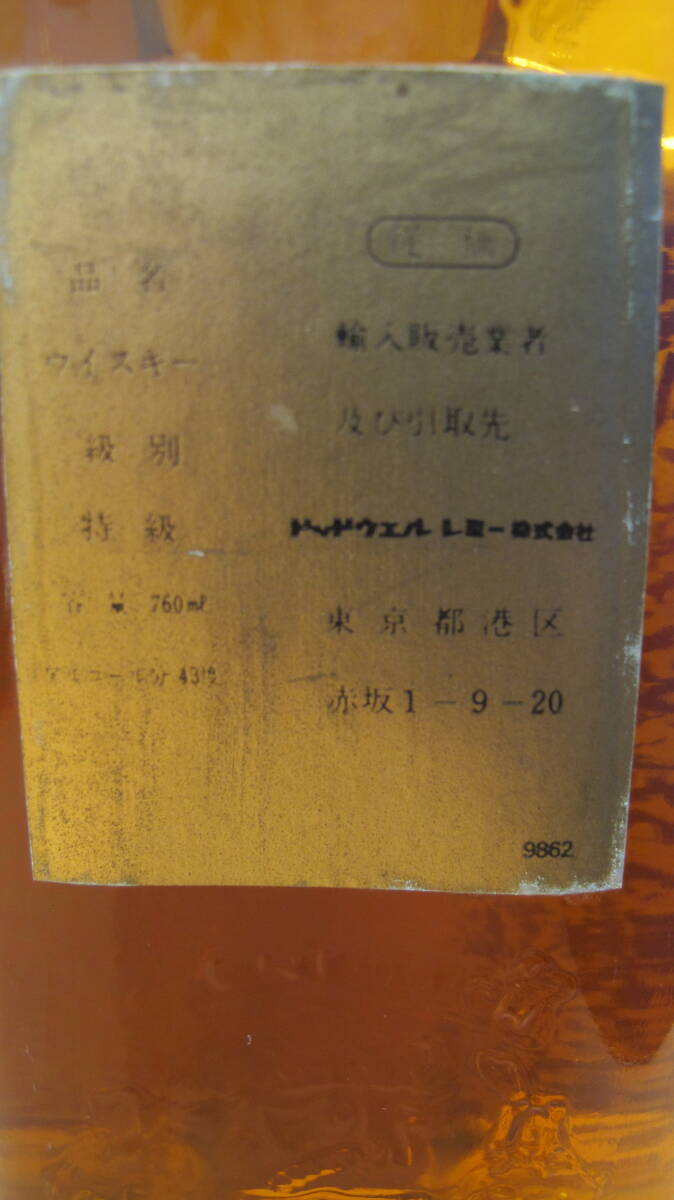 品名
ウイスキー
級別
特級
容量 760mℓ
アルコール分 43度
輸入販売業者
及び引取先
ドッドウエル レミー株式会社
東京都港区
赤坂1-9-20
9862